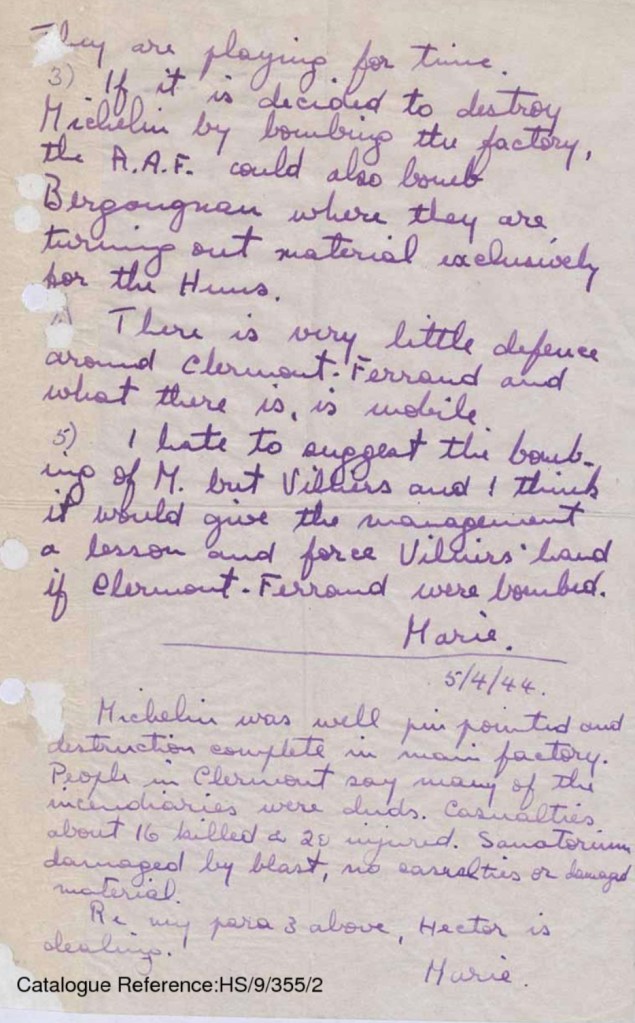 They are playing for time.
3) If it is decided to destroy
Michelin by bombing the factory,
the R.A.F. could also bomb
Bergougnan where they are
turning out material exclusively
for the Huns.
There is very little defence
around Clermont-Ferrand and
what there is, is mobile.
5) I hate to suggest the bomb-
ing of M. but Villiers and I think
it would give the management
a lesson and force Villiers' hand
if Clermont-Ferrand were bombed.
Marie.
5/4/44.
Michelin was well pin pointed and
destruction complete in main factory.
People in Clermont say many of the
incendiaries were duds. Casualties
about 16 killed & 20 injured. Sanatorium
damaged by blast, no casualties or damaged
material.
Re my para 3 above, Hector is
dealing.
Marie.
Catalogue Reference:HS/9/355/2